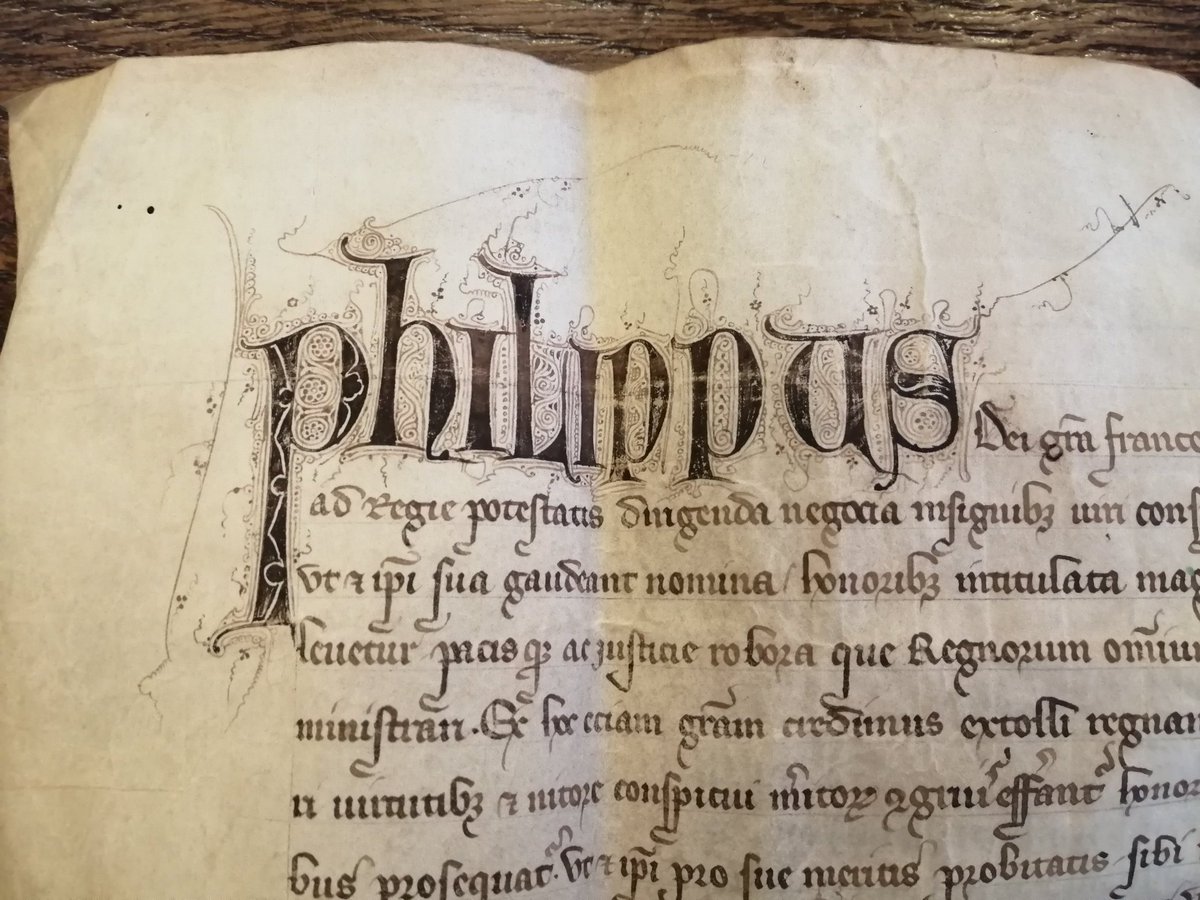 philippus Dei gra franco
ad Regie potestatis dirigenda negocia insignibz uiri cons
vt & ipi sua gaudeant nomina / honoribz intitulata mag
leuetur pacis qz ac justicie robora que Regnorum omiu
ministrari. Ex hoc eciam gram credimus extolli regnan
uirtutibz & nitore conspicui
bus prosequat vt & ipi pro sue meritis probitatis sibi